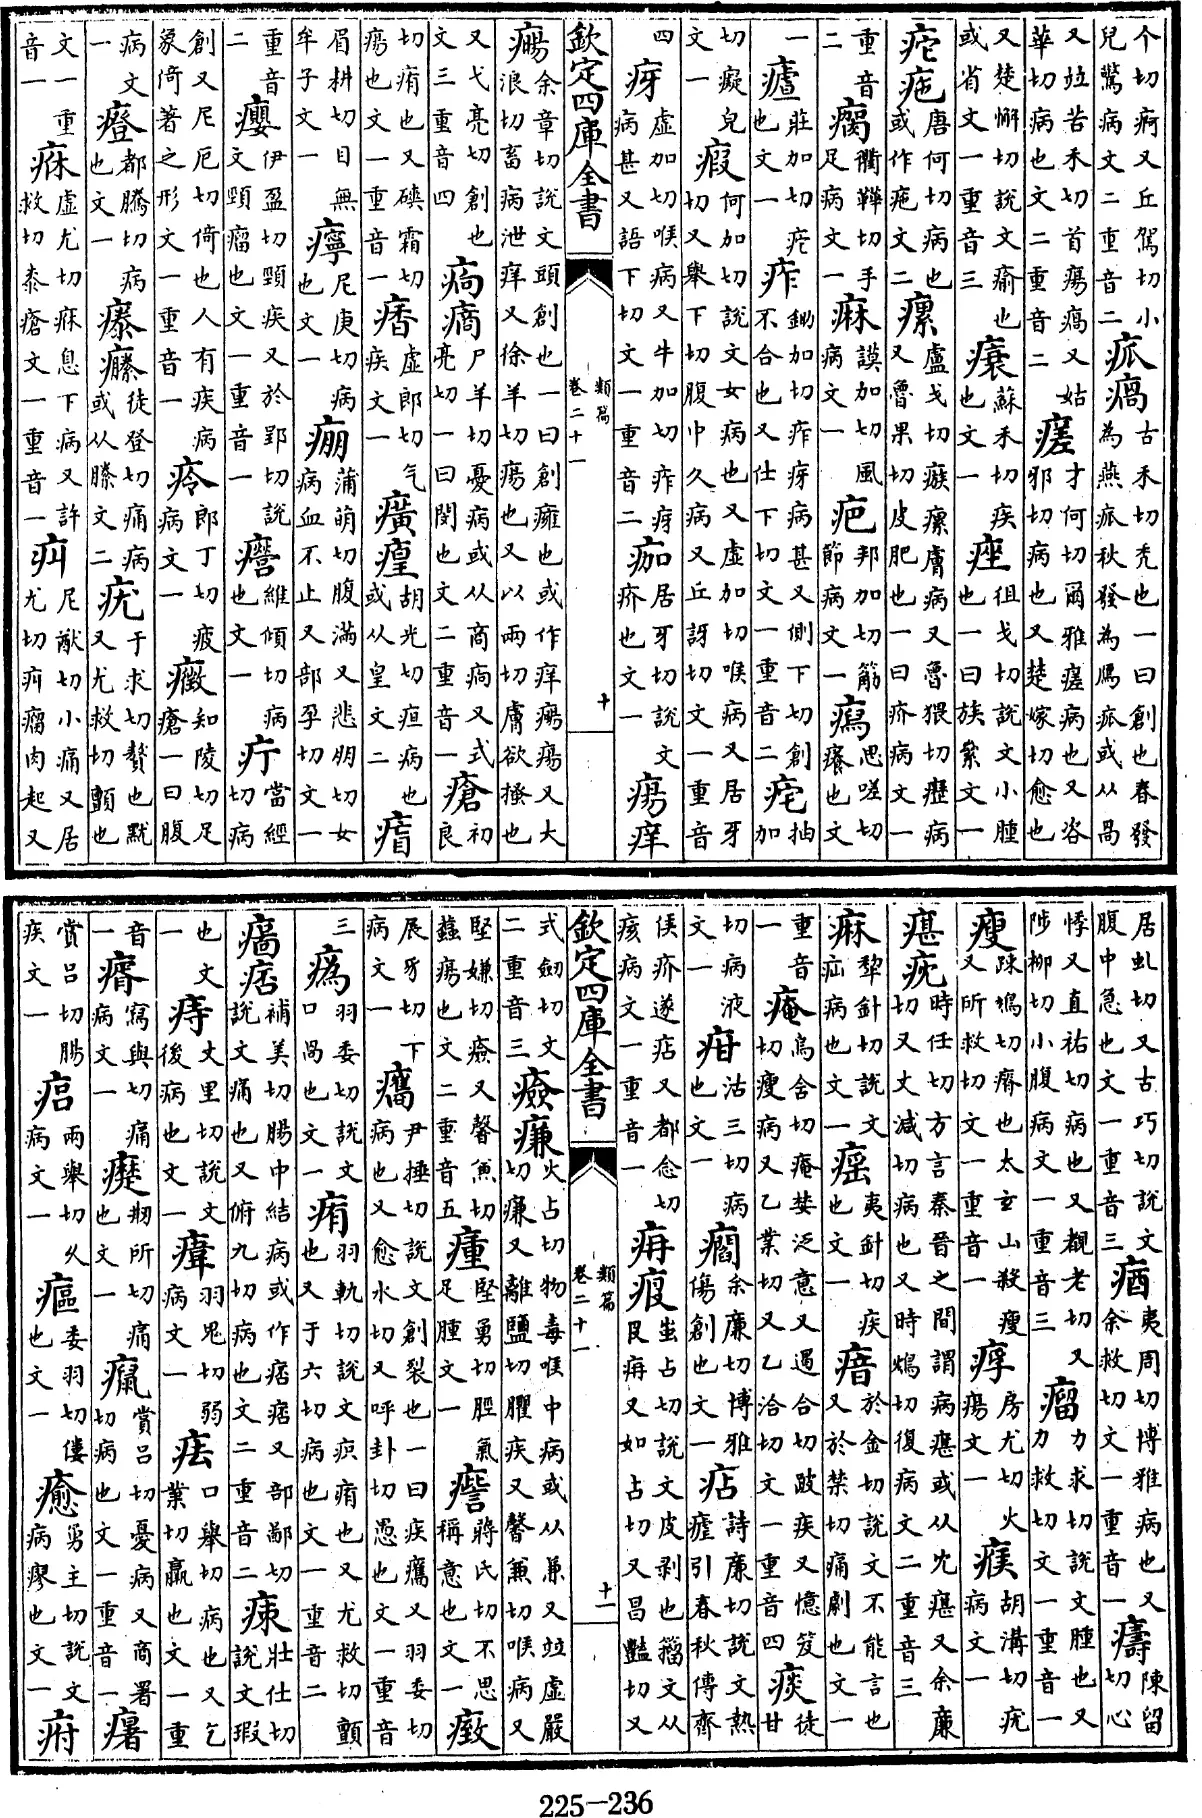 个切疴又丘駕切小兒驚病文二重音二 㽿瘑 古禾切禿也一曰創也春發為燕㽿秋發為鴈㽿或从咼
又竝苦禾切首瘍瘑又姑華切病也文二重音二 瘥 才何切爾雅瘥病也又咨邪切病也又楚嫁切愈也
又楚懈切說文瘉也或省文一重音三 蘇禾切疾也文一 痤 徂戈切說文小腫也一曰族絫文一
唐何切病也或作疤文二 瘰 盧戈切瘯瘰膚病又魯猥切癧病又魯果切皮肥也一曰疥病文一
重音二 瘸 衢鞾切手足病文一 痳 謨加切風病文一 疤 邦加切筋節病文一 思嗟切癢也文
一 莊加切疙也文一 痄 鉏加切痄疨病甚又側下切創不合也又仕下切文一重音二 抽加
切癡皃文一 瘕 何加切說文女病也又虛加切喉病又居牙切又舉下切腹中久病又丘訝切文一重音
四 疨 虛加切喉病又牛加切痄疨病甚又語下切文一重音二 痂 居牙切說文疥也文一 瘍痒
欽定四庫全書 類篇 卷二十一 十
瘍 余章切說文頭創也一曰創癰也或作痒瘍瘍又大浪切畜病泄痒又徐羊切瘍也又以兩切膚欲搔也
又弋亮切創也文三重音四 尸羊切憂病或从商又式亮切一曰閔也文二重音一 瘡 初良
切痏也又磢霜切瘍也文一重音一 虛郎切气疾文一 癀 胡光切疸病也或从皇文二
眉耕切目無牟子文一 尼庚切病也文一 痭 蒲萌切腹滿又悲朋切女病血不止又部孕切文一
重音二 癭 伊盈切頸疾又於郢切說文頸瘤也文一重音一 維傾切病也文一 疔 當經切病
創又尼厄切倚也人有疾病象倚著之形文一重音一 郎丁切疲病文一 癥 知陵切足瘡一曰腹
病文一 都騰切病也文一 徒登切痛病或从縢文二 疣 于求切贅也默又尤救切顫也
文一重音一 虛尤切息下病又許救切桼瘡文一重音一 尼猷切小痛又居尤切瘤肉起又
居虬切又古巧切說文腹中急也文一重音三 夷周切博雅病也又余救切文一重音一 陳留切心
悸又直祐切病也又覩老切又陟柳切小腹病文一重音三 瘤 力求切說文腫也又力救切文一重音一
瘦 踈鳩切瘠也太玄山殺瘦又所救切文一重音一 房尤切火瘍文一 瘊 胡溝切疣病文一
時任切方言秦晉之間謂病瘎或从冘瘎又余廉切又丈減切病也又時鴆切復病文二重音三
痳 犂針切說文疝病也文一 夷針切疾也文一 瘖 於金切說文不能言也又於禁切痛劇也文一
重音一 烏含切痷婪泛意又遏合切跛疾又憶笈切瘦病又乙業切又乙洽切文一重音四 痰 徒甘
切病液文一 疳 沽三切病也文一 余廉切博雅傷創也文一 痁 詩廉切說文熱瘧引春秋傳齊
侯疥遂痁又都念切痎病文一重音一 蚩占切說文皮剥也籀文从𠬝痹又如占切又昌豔切又
欽定四庫全書 類篇 卷二十一 十一
式劒切文二重音三 火占切物毒喉中病或从兼又竝虛嚴切又離鹽切臞疾又馨兼切喉病又
堅嫌切又馨兼切蠚瘍也文二重音五 瘇 堅勇切脛氣足腫文一 蔣氏切不思稱意也文一
展豸切下病文一 尹捶切說文創裂也一曰疾又羽委切病也又愈水切又呼卦切愚也文一重音
三 羽委切說文口咼也文一 痏 羽軌切說文疻痏也又尤救切顫也又于六切病也文一重音二
痞 補美切腸中結病或作痞痞又部鄙切說文痛也又俯九切病也文二重音二 壯仕切說文瑕
也文一 痔 丈里切說文後病也文一 羽鬼切弱病文一 口舉切病也又乞業切羸也文一重
音一 寫與切痛病文一 刱所切痛也文一 賞呂切憂病又商署切病也文一重音一
賞呂切腸疾文一 兩舉切久病文一 委羽切僂也文一 瘉 勇主切說文病瘳也文一 府
225—236